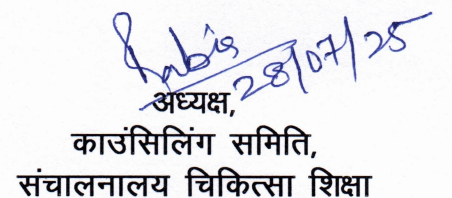 28/07/25
अध्यक्ष,
काउंसिलिंग समिति,
संचालनालय चिकित्सा शिक्षा